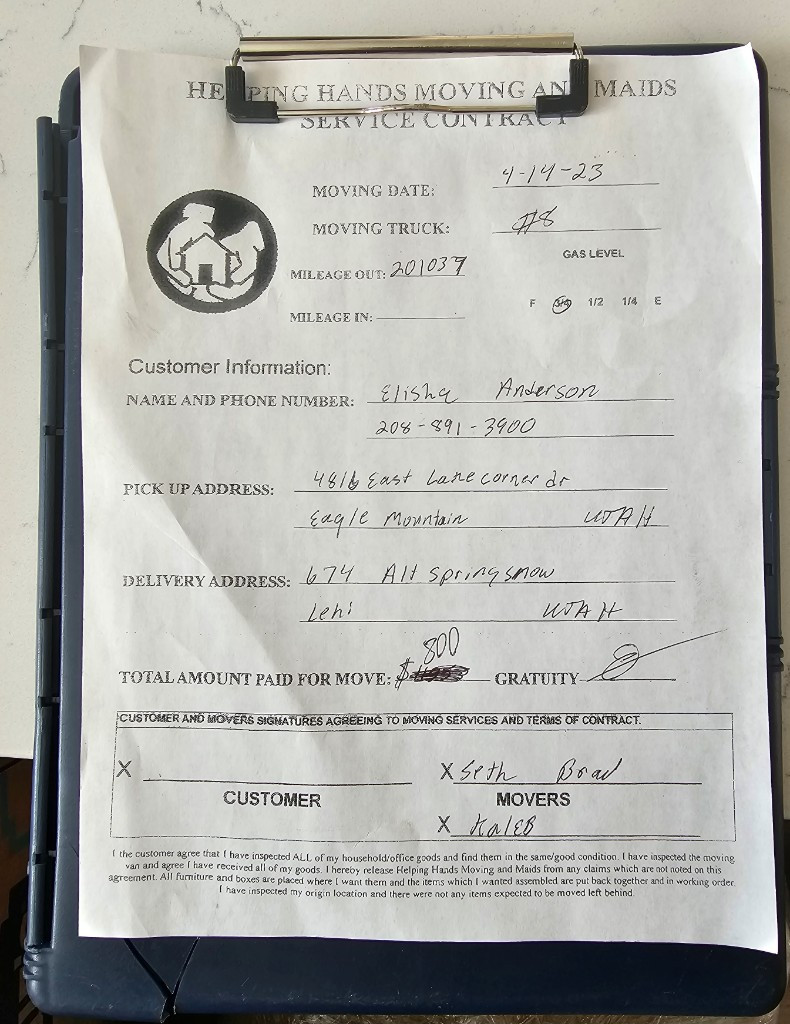 HELPING HANDS MOVING AND MAIDS
SERVICE CONTRACT
MOVING DATE: 4-14-23
MOVING TRUCK: #8
GAS LEVEL
MILEAGE OUT: 201037
F 3/4 1/2 1/4 E
MILEAGE IN:
Customer Information:
NAME AND PHONE NUMBER: Elisha Anderson
208-891-3900
PICK UP ADDRESS: 4816 East Lane corner dr
Eagle Mountain UTAH
DELIVERY ADDRESS: 674 Alt spring snow
Lehi UTAH
800
TOTAL AMOUNT PAID FOR MOVE: $ GRATUITY
CUSTOMER AND MOVERS SIGNATURES AGREEING TO MOVING SERVICES AND TERMS OF CONTRACT.
X X Seth Brad
CUSTOMER MOVERS
X KALEB
I the customer agree that I have inspected ALL of my household/office goods and find them in the same/good condition. I have inspected the moving
van and agree I have received all of my goods. I hereby release Helping Hands Moving and Maids from any claims which are not noted on this
agreement. All furniture and boxes are placed where I want them and the items which I wanted assembled are put back together and in working order.
I have inspected my origin location and there were not any items expected to be moved left behind.